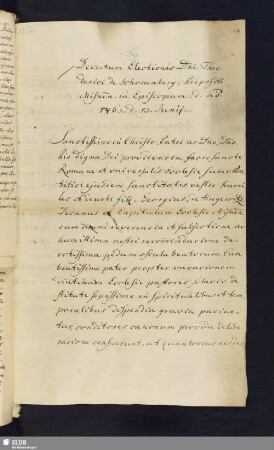 Decretum Electionis Dni Theo
derici de Schonenberg, Praepositi
Misnen. in Episcopum d. ad
1463. d. 13. Junij.
Sanctissimo in Christo Patri ac Dno, Dno
Pio digna Dei providencia sacrosancte
Romane et vniversalis Ecclesie summo Pon
tifici ejusdem Sanctitatis vestre humi
les devoti filij, Georgius, de Haugewitz
Decanus et Capitulum Ecclesie Misnen
cum omni reverencia et subjectione ac
humillima nostri recommendacione de
votissima pedum oscula beatorum. Cum
beatissime pater propter vacacionem
Ecclesie pastoris, solacio de
stitute sepissime in spiritualibus et tem
poralibus dispendia gravia pacian
tur, conditores canonum provida delibe
racione censuerunt, ut quantocius eisdem
SLUB